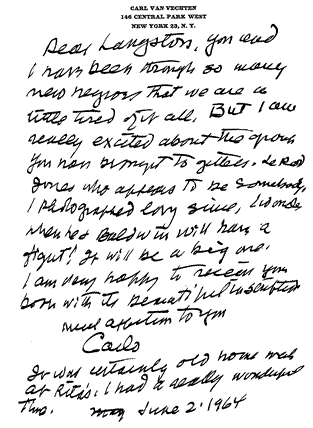 CARL VAN VECHTEN
146 CENTRAL PARK WEST
NEW YORK 23, N. Y.
Dear Langston, you and
I have been through so many
new negroes that we are a
little tired of it all. But I am
really excited about the group
you have brought together. Le Roi
Jones who appears to be somebody,
I photographed long since, I wonder
whether Baldwin will have a
fight! It will be a big one.
I am very happy to receive your
book with its beautiful inscription
much affection to you
Carlo
It was certainly old home week
at Rita's. I had a really wonderful
time. June 2 · 1964